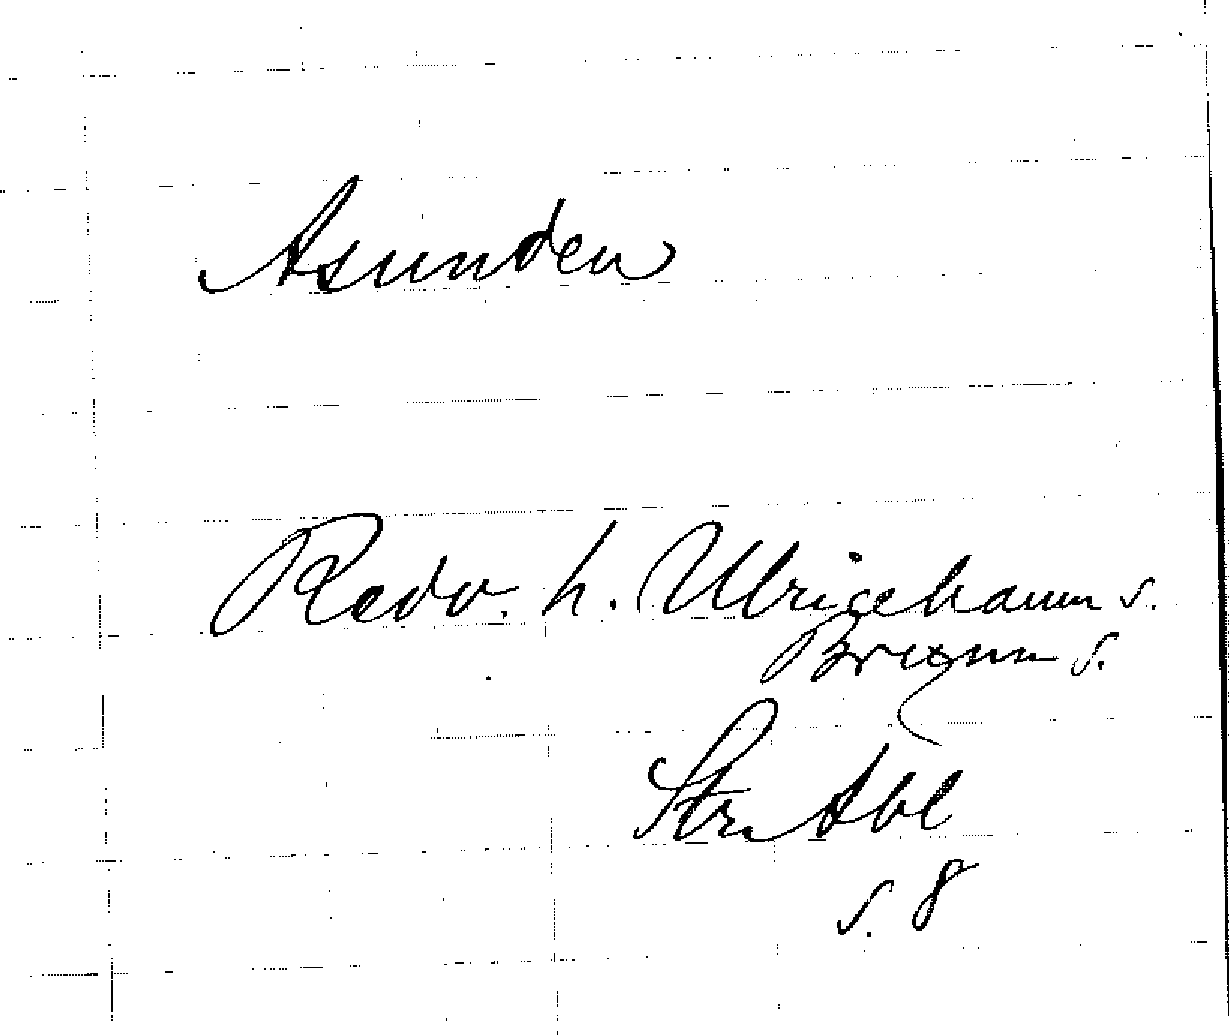 Asunden
Redv. h. Ulricehamn s.
Brunn s.
Str Abl
s. 8